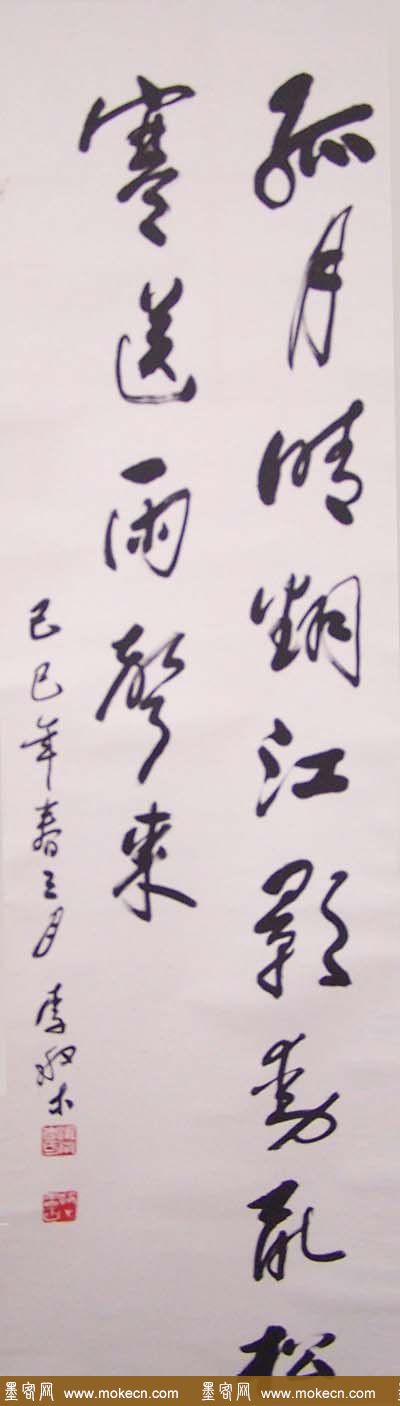 孤月晴翻江影動亂松
寒送雨聲来
己巳年春三月李
墨客网 www.mokecn.com 墨客网 www.mokecn.com